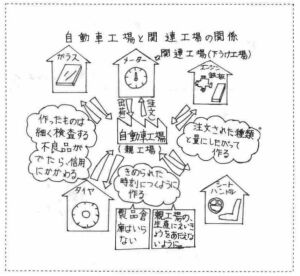 自動車工場と関連工場の関係
関連工場(下うけ工場)
ガラス
メーター
エンジン
鉄板
出荷
注文
自動車工場
(親工場)
作ったものは
細く検査する
不良品が
でたら、信用
にかかわる
注文された種類
と量にしたがって
作る
きめられた
時刻につくように
作る
タイヤ
シート
ハンドル
製品倉
庫はいら
ない
親工場の、
生産にえいき
ょうをあたえな
いように